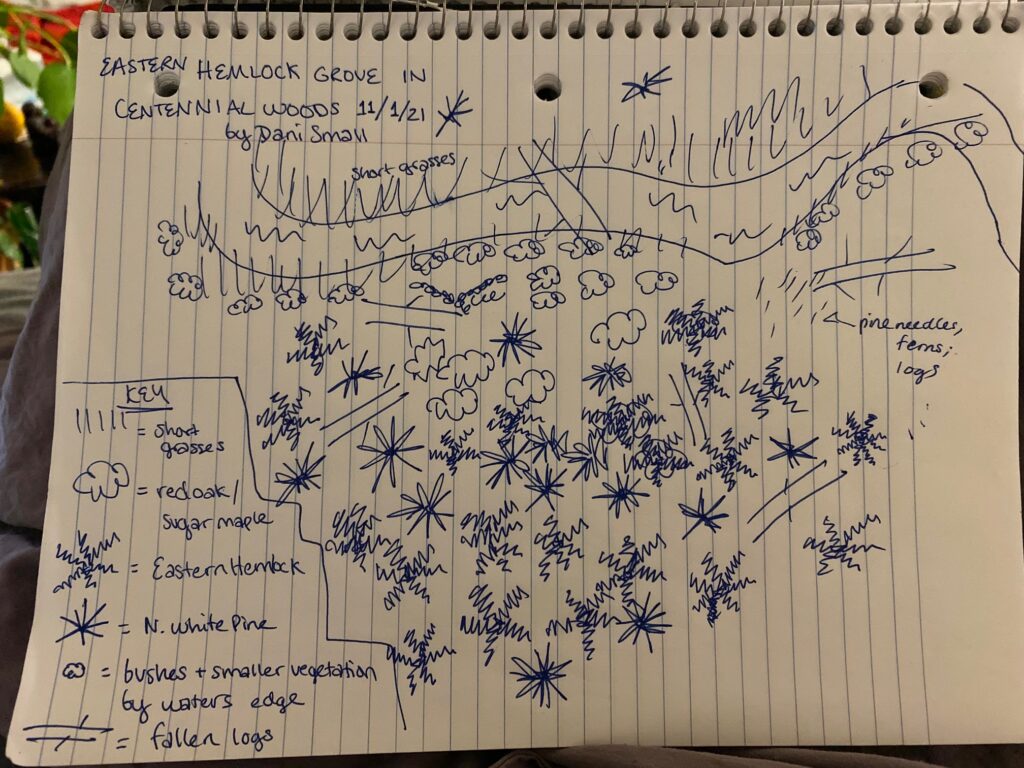 EASTERN HEMLOCK GROVE IN
CENTENNIAL WOODS 11/1/21
by Dani Small
short grasses
pine needles,
ferns,
logs
KEY
= short
grasses
= red oak/
sugar maple
= Eastern Hemlock
= N. White Pine
= bushes + smaller vegetation
by waters edge
= fallen logs